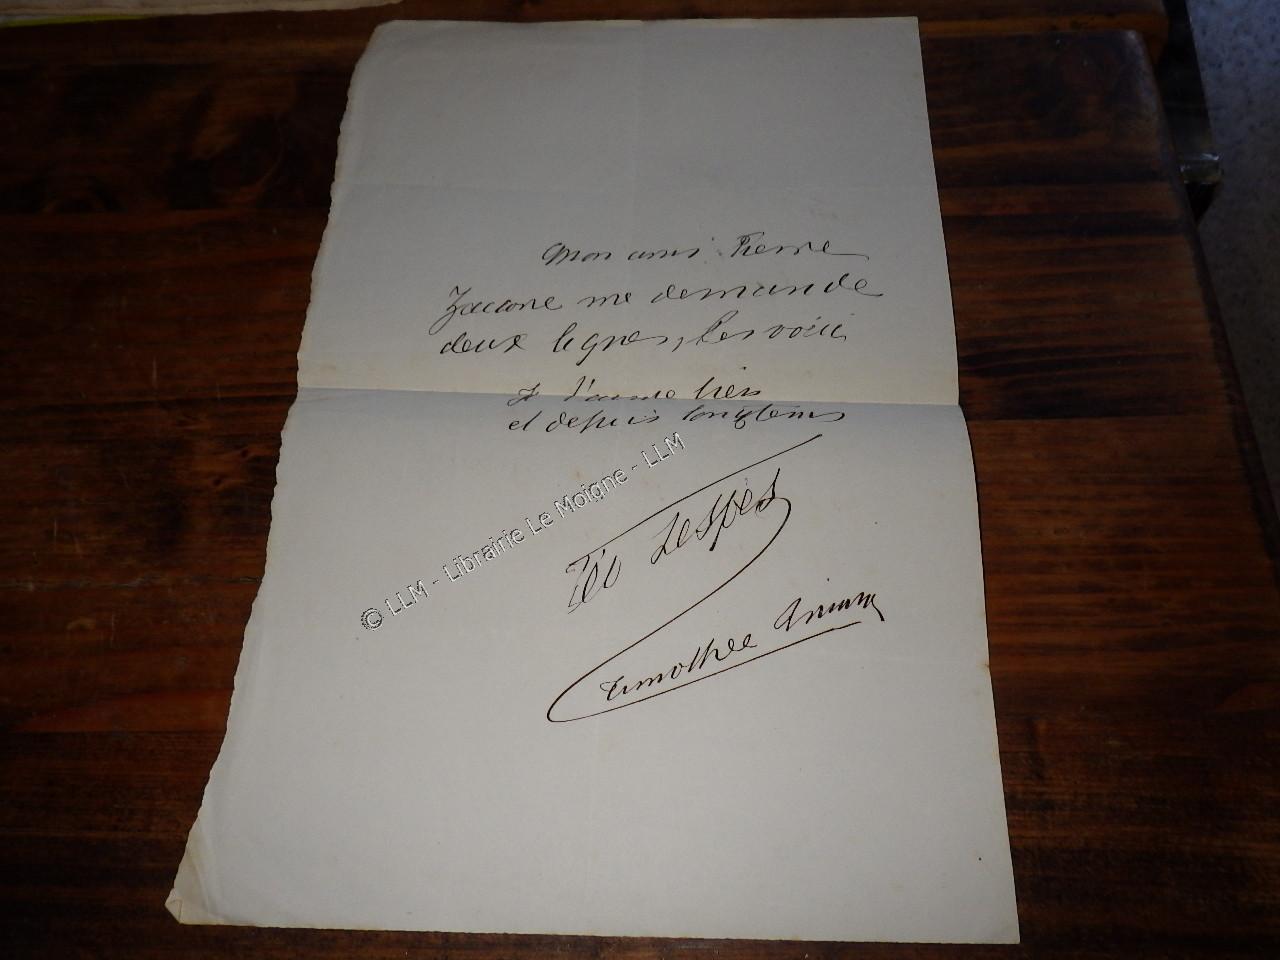 Mon ami Pierre
Zaccone me demande
deux lignes, les voici
Je l'aime bien
et depuis longtems
© LLM - Librairie Le Moigne - LLM
Léo Lespès
Timothée Trimm